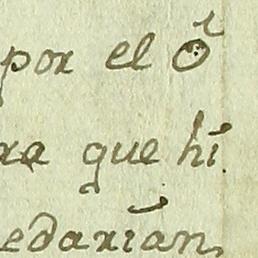 por el Ôr
ra que hi
edarian,